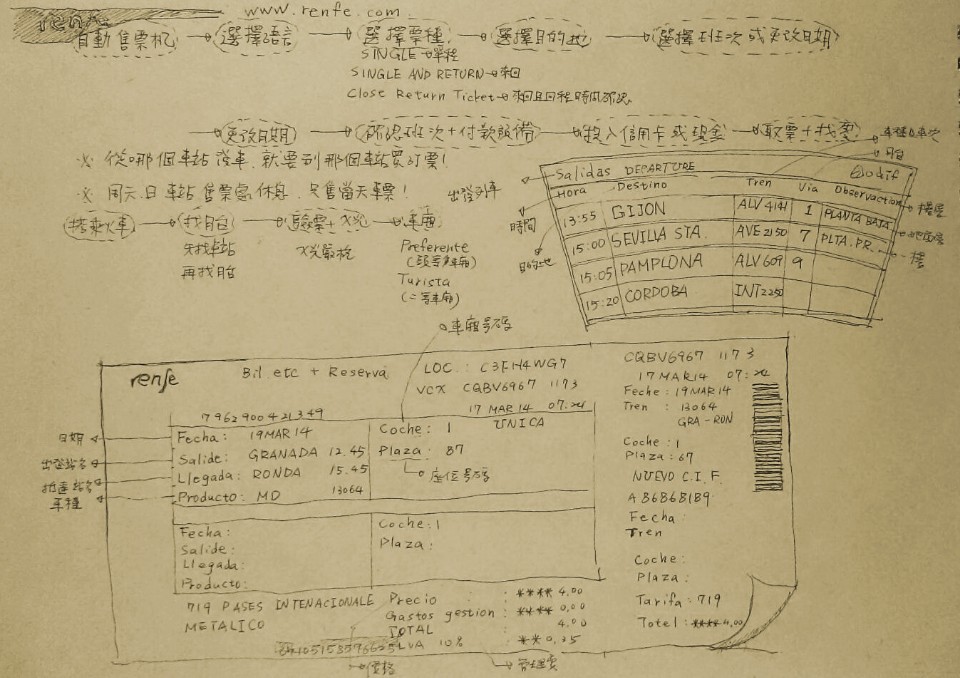 www.renfe.com
自動售票機 → 選擇語言 → 選擇票種 → 選擇目的地 → 選擇班次或更改日期
SINGLE → 單程
SINGLE AND RETURN → 來回
Close Return Ticket → 來回且回程時間確認
→ 更改日期 → 確認班次+付款設備 → 投入信用卡或現金 → 取票+找零
※ 從哪個車站發車,就要到那個車站買訂票!
※ 周六.日車站售票處休息,只售當天車票!
搭乘火車 → 找月台 → 驗票+X光 → 車廂
先找車站
再找月台
X光嚴格
Preferente
(頭等車廂)
Turista
(二等車廂)
出發列車
車種&車次
月台
Salidas DEPARTURE
Hora Destino Tren Via Observaction
13:55 GIJON ALV 4141 1 PLANTA BAJA
15:00 SEVILLA STA. AVE 2150 7 PLTA. PR...
15:05 PAMPLONA ALV 609 9
15:20 CORDOBA INT 2250
時間
目的地
樓層
地面層
一樓
車廂号码
renfe
Bil etc + Reserva
LOC.: C3FH4WG7
VCX CQBV6967 1173
17 MAR 14 07.
7962900421349
日期
Fecha: 19MAR14
出發站名
Salide: GRANADA 12.45
抵達站名
Llegada: RONDA 15.45
車種
Producto: MD 13064
Coche: 1 UNICA
Plaza: 87
座位号码
Fecha:
Salide:
Llegada:
Producto:
Coche: 1
Plaza:
719 PASES INTENACIONALE
METALICO
Precio : **** 4,00
Gastos gestion : **** 0,00
TOTAL : 4.00
LVA 10% : ** 0,35
價格
管理費
CQBV6967 1173
17 MAR 14 07:
Feche: 19MAR14
Tren : 13064
GRA-RON
Coche: 1
Plaza: 67
NUEVO C.I.F.
AB6B6B1B9
Fecha
Tren
Coche:
Plaza:
Tarifa: 719
Totel: **** 4,00